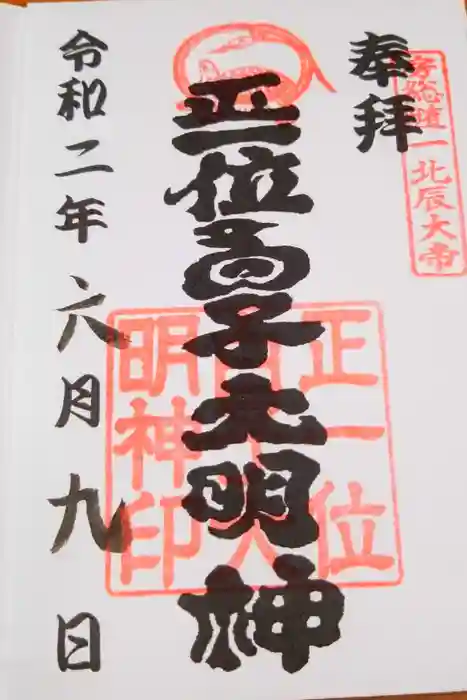 奉拝
総道一北辰大帝
正一位高子大明神
正一位
高子大
明神印
令和二年六月九日